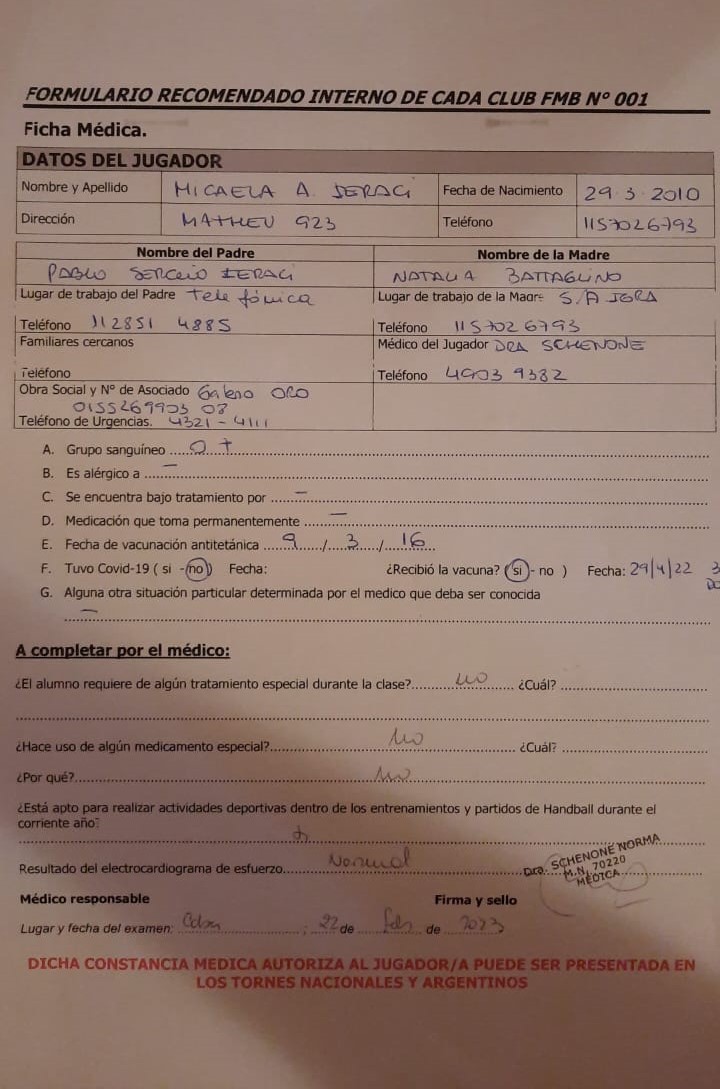 FORMULARIO RECOMENDADO INTERNO DE CADA CLUB FMB Nº 001
Ficha Médica.
DATOS DEL JUGADOR
Nombre y Apellido MICAELA A. IERACI Fecha de Nacimiento 29 3 2010
Dirección MATHEU 923 Teléfono 1157026793
Nombre del Padre Nombre de la Madre
PABLO SERGIO IERACI NATALIA BATTAGLINO
Lugar de trabajo del Padre Telefónica Lugar de trabajo de la Madre S/A
Teléfono 112851 4885 Teléfono 1157026793
Familiares cercanos Médico del Jugador DRA SCHENONE
Teléfono Teléfono 4903 9382
Obra Social y Nº de Asociado Galeno ORO
0155269903 03
Teléfono de Urgencias. 4321 - 4111
A. Grupo sanguíneo O +
B. Es alérgico a —
C. Se encuentra bajo tratamiento por —
D. Medicación que toma permanentemente —
E. Fecha de vacunación antitetánica 9 / 3 / 16
F. Tuvo Covid-19 ( si - no ) Fecha: ¿Recibió la vacuna? ( si - no ) Fecha: 29/4/22 3
G. Alguna otra situación particular determinada por el medico que deba ser conocida
—
A completar por el médico:
¿El alumno requiere de algún tratamiento especial durante la clase? no ¿Cuál?
¿Hace uso de algún medicamento especial? no ¿Cuál?
¿Por qué? no
¿Está apto para realizar actividades deportivas dentro de los entrenamientos y partidos de Handball durante el
corriente año?
Resultado del electrocardiograma de esfuerzo Normal
Dra. SCHENONE NORMA
M.N. 70220
MÉDICA
Médico responsable Firma y sello
Lugar y fecha del examen: : 22 de feb de 2023
DICHA CONSTANCIA MEDICA AUTORIZA AL JUGADOR/A PUEDE SER PRESENTADA EN
LOS TORNES NACIONALES Y ARGENTINOS